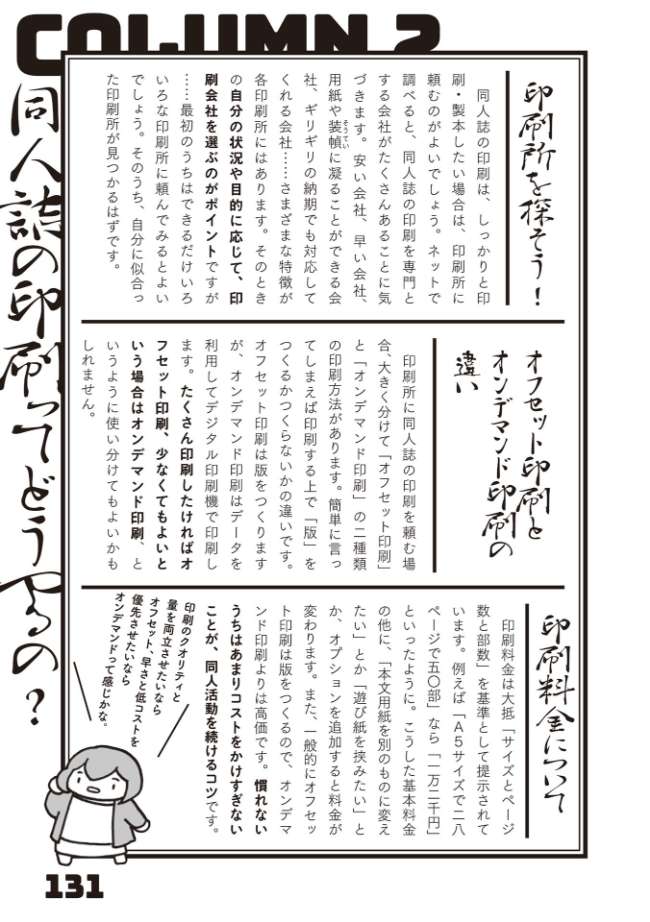 COLUMN 2
同人誌の印刷ってどうやるの？
印刷所を探そう！
同人誌の印刷は、しっかりと印
刷・製本したい場合は、印刷所に
頼むのがよいでしょう。ネットで
調べると、同人誌の印刷を専門と
する会社がたくさんあることに気
づきます。安い会社、早い会社、
用紙や装幀に凝ることができる会
そうてい
社、ギリギリの納期でも対応して
くれる会社……さまざまな特徴が
各印刷所にはあります。そのとき
の自分の状況や目的に応じて、印
刷会社を選ぶのがポイントですが
……最初のうちはできるだけいろ
いろな印刷所に頼んでみるとよい
でしょう。そのうち、自分に似合っ
た印刷所が見つかるはずです。
オフセット印刷と
オンデマンド印刷の
違い
印刷所に同人誌の印刷を頼む場
合、大きく分けて「オフセット印刷」
と「オンデマンド印刷」の二種類
の印刷方法があります。簡単に言っ
てしまえば印刷する上で「版」を
つくるかつくらないかの違いです。
オフセット印刷は版をつくります
が、オンデマンド印刷はデータを
利用してデジタル印刷機で印刷し
ます。たくさん印刷したければオ
フセット印刷、少なくてもよいと
いう場合はオンデマンド印刷、と
いうように使い分けてもよいかも
しれません。
印刷料金について
印刷料金は大抵「サイズとページ
数と部数」を基準として提示されて
います。例えば「A5サイズで二八
ページで五〇部」なら「一万二千円」
といったように。こうした基本料金
の他に、「本文用紙を別のものに変え
たい」とか「遊び紙を挟みたい」と
か、オプションを追加すると料金が
変わります。また、一般的にオフセッ
ト印刷は版をつくるので、オンデマ
ンド印刷よりは高価です。慣れない
うちはあまりコストをかけすぎない
ことが、同人活動を続けるコツです。
印刷のクオリティと
量を両立させたいなら
オフセット、早さと低コストを
優先させたいなら
オンデマンドって感じかな。
131